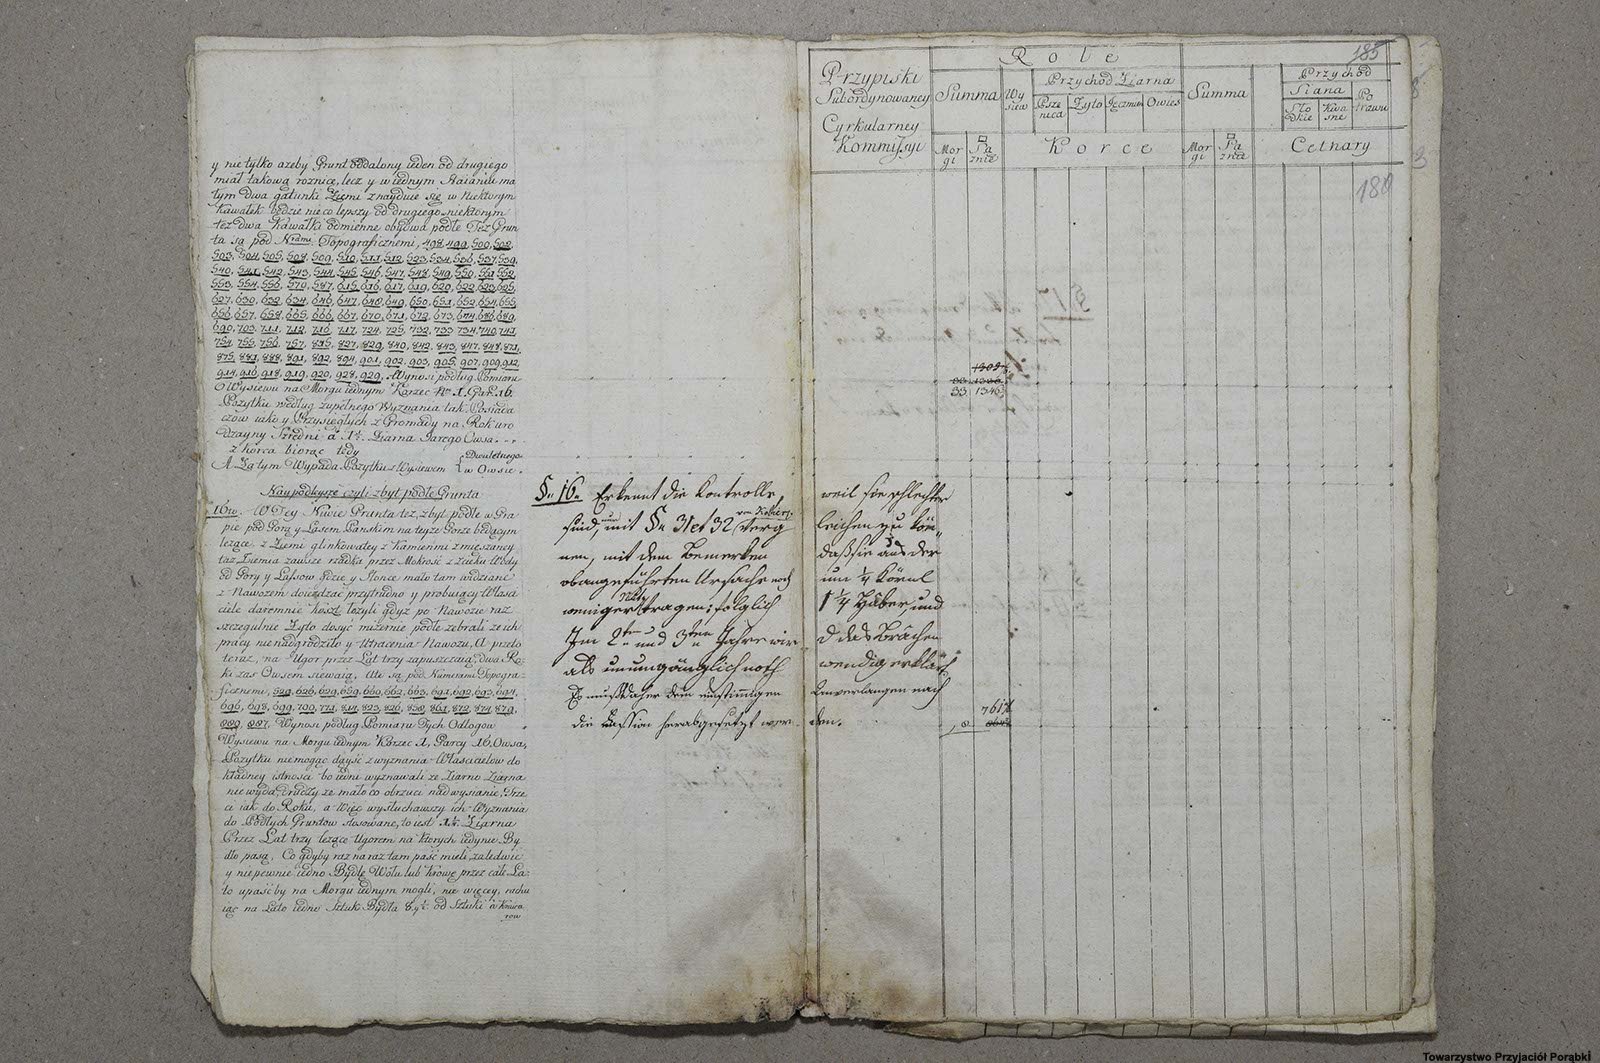 y nie tylko azeby Grunt oddalony ieden od drugiego
miał takową roznicę, lecz y w iednym Staianiu ma
łym dwa gatunki Ziemi znayduie się, w Niektorym
Kawałek będzie nieco lepszy od drugiego, niektorym
też dwa Kawałki odmienne obydwa podłe. Też Grun
ta są pod Nrami Topograficznemi, 498, 499, 500, 502,
503, 504, 505, 508, 509, 510, 511, 512, 523, 534, 536, 537, 539,
540, 541, 542, 543, 544, 545, 546, 547, 548, 549, 550, 551, 552,
553, 554, 556, 579, 587, 615, 616, 617, 619, 620, 622, 623, 625,
627, 630, 632, 634, 646, 647, 648, 649, 650, 651, 652, 654, 655,
656, 657, 658, 665, 666, 667, 670, 671, 672, 673, 674, 686, 689,
690, 703, 711, 712, 716, 717, 724, 725, 732, 733, 734, 740, 741,
754, 755, 756, 757, 827, 829, 840, 842, 843, 847, 848, 871,
875, 881, 888, 891, 892, 894, 901, 902, 903, 905, 907, 909, 912,
914, 916, 918, 919, 920, 928, 929, Wynosi podług Pomiaru
O Wysiewu na Morgu iednym Korzec 1, Gar. 16.
Pożytku według zupełnego Wyznania tak Posiada
czow iako y Przysięgłych z Gromady na Rok uro
dzayny Sredni a Ziarna Jarego Owsa
z Korca biorąc tedy
A Zatym Wypada Pożytku z Wysiewem Dwuletnego w Owsie.
Naypodleysze czyli zbyt podłe Grunta
16to. W Tey Niwie Grunta też, zbyt podłe w Gra
pie pod Gorą y Lasem Pańskim na teyże Gorze będącym
leżące z Ziemi glinkowatey z Kamieńmi zmieszaney
taż Ziemia zawsze rzadka przez Mokrość z Zcieku Wody
od Gory y Lassow gdzie y Słonce mało tam widziane
z Nawozem doieżdzać przytrudno y probuiący Właści
ciele daremnie koszt łożyli gdyż po Nawozie raz
szczegulnie Zyto dosyć mizernie podłe zebrali ze ich
pracy nie nadgrodziło y Utracenia Nawozu, A przeto
teraz, na Ugor przez Lat trzy zapuszczaią, dwa Ro
ki zas Owsem siewaią. Ale są pod Numerami Topogra
ficznemi, 529, 626, 629, 659, 660, 662, 663, 691, 692, 693, 694,
696, 698, 699, 700, 771, 814, 823, 826, 858, 861, 872, 874, 879,
889, 897. Wynosi podług Pomiaru Tych Odłogow
Wysiewu na Morgu iednym Korzec 1, Garcy 16. Owsa,
Pożytku nie mogąc dayść z wyznania Właścicielow do
kładney istności bo iedni wyznawali ze Ziarno Ziarna
nie wyda, drudzy ze mało co obrzuci nad wysianie,
ci iak do Roku, a Więc wysłuchawszy ich Wyznania
do Podłych Gruntow stosowane, to iest Ziarna
Przez Lat trzy leżące Ugorem na ktorych iedynie By
dło pasą, Co gdyby raz na raz tam paść mieli, zaledwie
y niepewnie iedno Bydlę Wołu lub Krowę przez całe La
to upaść by na Morgu iednym mogli, nie więcey, rachu
iąc na Lato iedno Sztuk Bydła od Sztuki a Krayca
row
§. 16. Erkennt die Kontrolle
sind, mit § 31 et 32 Verg
nen, mit dem Bemerken
obangeführten Ursache noch
weniger tragen; folglich
Im 2ten und 3ten Jahre wir
als unumgänglich noth
Es muß daher dem einstimmigen
die Fassion herabgesetzt wer
weil sie schlechter
leichen zu kön
daß sie aus der
um 1/4 Körnl
1 1/4 Haber und
d das Brachen
wendig erklärt
Einverlangen nach
den.
185
Przypiski
Subordynowaney
Cyrkularney
Kommissyi
Role
Summa
Mor
gi
Są
żnie
Wy
siew
Przychod Ziarna
Psze
nica
Zyto
Jęczmień
Owies
Korce
Summa
Mor
gi
Są
żnie
Przychod
Siana
Sło
dkie
Kwa
śne
Po
trawu
Cetnary
180
33. 1346
7617
Towarzystwo Przyjaciół Porąbki